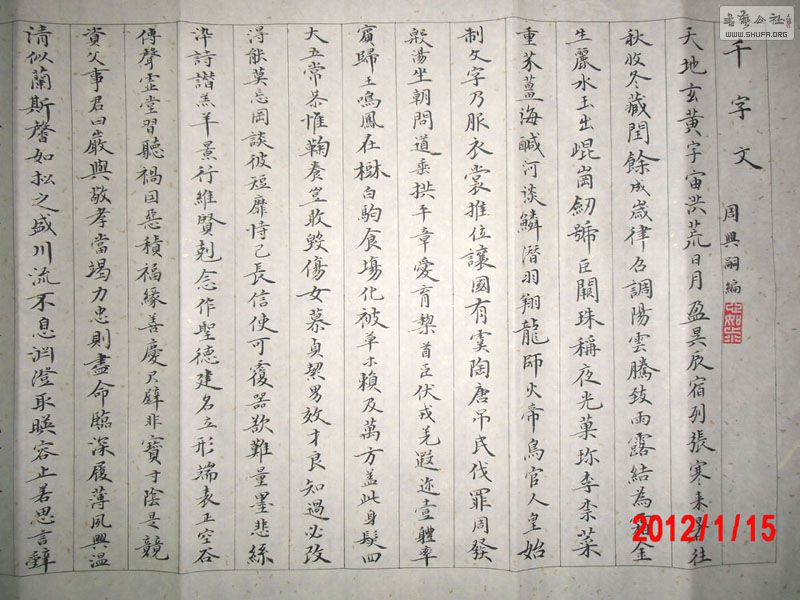 千字文 周興嗣編
天地玄黃宇宙洪荒日月盈昃辰宿列張寒來暑往
秋收冬藏閏餘成歲律召調陽雲騰致雨露結為金
生麗水玉出崐崗劒號巨闕珠稱夜光菓珍李柰菜
重芥薑海鹹河淡鱗潛羽翔龍師火帝鳥官人皇始
制文字乃服衣裳推位讓國有虞陶唐吊民伐罪周發
殷湯坐朝問道垂拱平章愛育黎首臣伏戎羌遐迩壹體率
賓歸王鳴鳳在樹白駒食場化被草木賴及萬方蓋此身髮四
大五常恭惟鞠養豈敢毀傷女慕貞絜男效才良知過必改
得能莫忘罔談彼短靡恃己長信使可覆器欲難量墨悲絲
染詩讚羔羊景行維賢剋念作聖德建名立形端表正空谷
傳聲虛堂習聽禍因惡積福緣善慶尺璧非寶寸陰是競
資父事君曰嚴與敬孝當竭力忠則盡命臨深履薄夙興溫
清似蘭斯馨如松之盛川流不息淵澄取暎容止若思言辭
書藝公社
WWW.SHUFA.ORG
2012/1/15